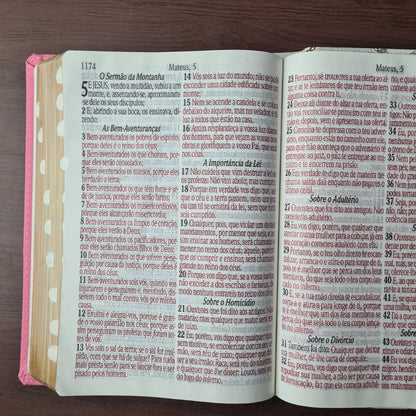 1174
Mateus, 5
O Sermão da Montanha
5 E JESUS, vendo a multidão, subiu a um
monte, e, assentando-se, aproximaram-
se dele os seus discípulos;
2 E, abrindo a sua boca, os ensinava, di-
zendo:
As Bem-Aventuranças
3 Bem-aventurados os pobres de espírito,
porque deles é o reino dos céus;
4 Bem-aventurados os que choram, por-
que eles serão consolados;
5 Bem-aventurados os mansos, porque eles
herdarão a terra;
6 Bem-aventurados os que têm fome e se-
de de justiça, porque eles serão fartos;
7 Bem-aventurados os misericordiosos,
porque eles alcançarão misericórdia;
8 Bem-aventurados os limpos de coração,
porque eles verão a Deus;
9 Bem-aventurados os pacificadores, por-
que eles serão chamados filhos de Deus;
10 Bem-aventurados os que sofrem perse-
guição por causa da justiça, porque deles é
o reino dos céus;
11 Bem-aventurados sois vós, quando vos
injuriarem e perseguirem e, mentindo, dis-
serem todo o mal contra vós por minha
causa.
12 Exultai e alegrai-vos, porque é gran-
de o vosso galardão nos céus; porque as-
sim perseguiram os profetas que foram
antes de vós.
13 Vós sois o sal da terra; e se o sal for insí-
pido, com que se há de salgar? Para nada
mais presta senão para se lançar fora e ser
pisado pelos homens.
14 Vós sois a luz do mundo; não se pode
esconder uma cidade edificada sobre um
monte;
15 Nem se acende a candeia e se coloca
debaixo do alqueire, mas no velador, e dá
luz a todos que estão na casa.
16 Assim resplandeça a vossa luz diante
dos homens, para que vejam as vossas boas
obras e glorifiquem a vosso Pai, que está
nos céus.
A Importância da Lei
17 Não cuideis que vim destruir a lei ou os
profetas: Não vim abolir, mas cumprir.
18 Porque em verdade vos digo que até
que o céu e a terra passem, nem um jota
ou um til se omitirá da lei, sem que tudo
seja cumprido.
19 Qualquer, pois, que violar um destes
mandamentos, por menor que seja, e as-
sim ensinar aos homens, será chamado o
menor no reino dos céus; aquele, porém,
que os cumprir e ensinar será chamado
grande no reino dos céus.
20 Porque vos digo que, se a vossa justiça
não exceder a dos escribas e fariseus, de
modo nenhum entrareis no reino dos céus.
Sobre o Homicídio
21 Ouvistes que foi dito aos antigos: Não
matarás; mas qualquer que matar será réu
de juízo.
22 Eu, porém, vos digo que qualquer que,
sem motivo, se encolerizar contra seu ir-
mão, será réu de juízo; e qualquer que
disser a seu irmão: Raca, será réu do siné-
drio; e qualquer que lhe disser: Louco, será réu
do fogo do inferno.
Mateus, 5
23 Portanto, se trouxeres a tua oferta ao al-
tar, e aí te lembrares de que teu irmão tem
alguma coisa contra ti,
24 Deixa ali diante do altar a tua oferta,
e vai reconciliar-te primeiro com teu ir-
mão e, depois, vem e apresenta a tua oferta.
25 Concilia-te depressa com o teu adver-
sário, enquanto estás no caminho com ele,
para que não aconteça que o adversário te
entregue ao juiz, o juiz te entregue ao ofi-
cial, e te encerrem na prisão.
26 Em verdade te digo que de maneira ne-
nhuma sairás dali enquanto não pagares o
último ceitil.
Sobre o Adultério
27 Ouvistes que foi dito aos antigos: Não
cometerás adultério.
28 Eu, porém, vos digo que qualquer que
atentar numa mulher para a cobiçar, já em
seu coração cometeu adultério com ela.
Sobre o Divórcio
31 Também foi dito: Qualquer que deixar
sua mulher, dê-lhe carta de desquite.